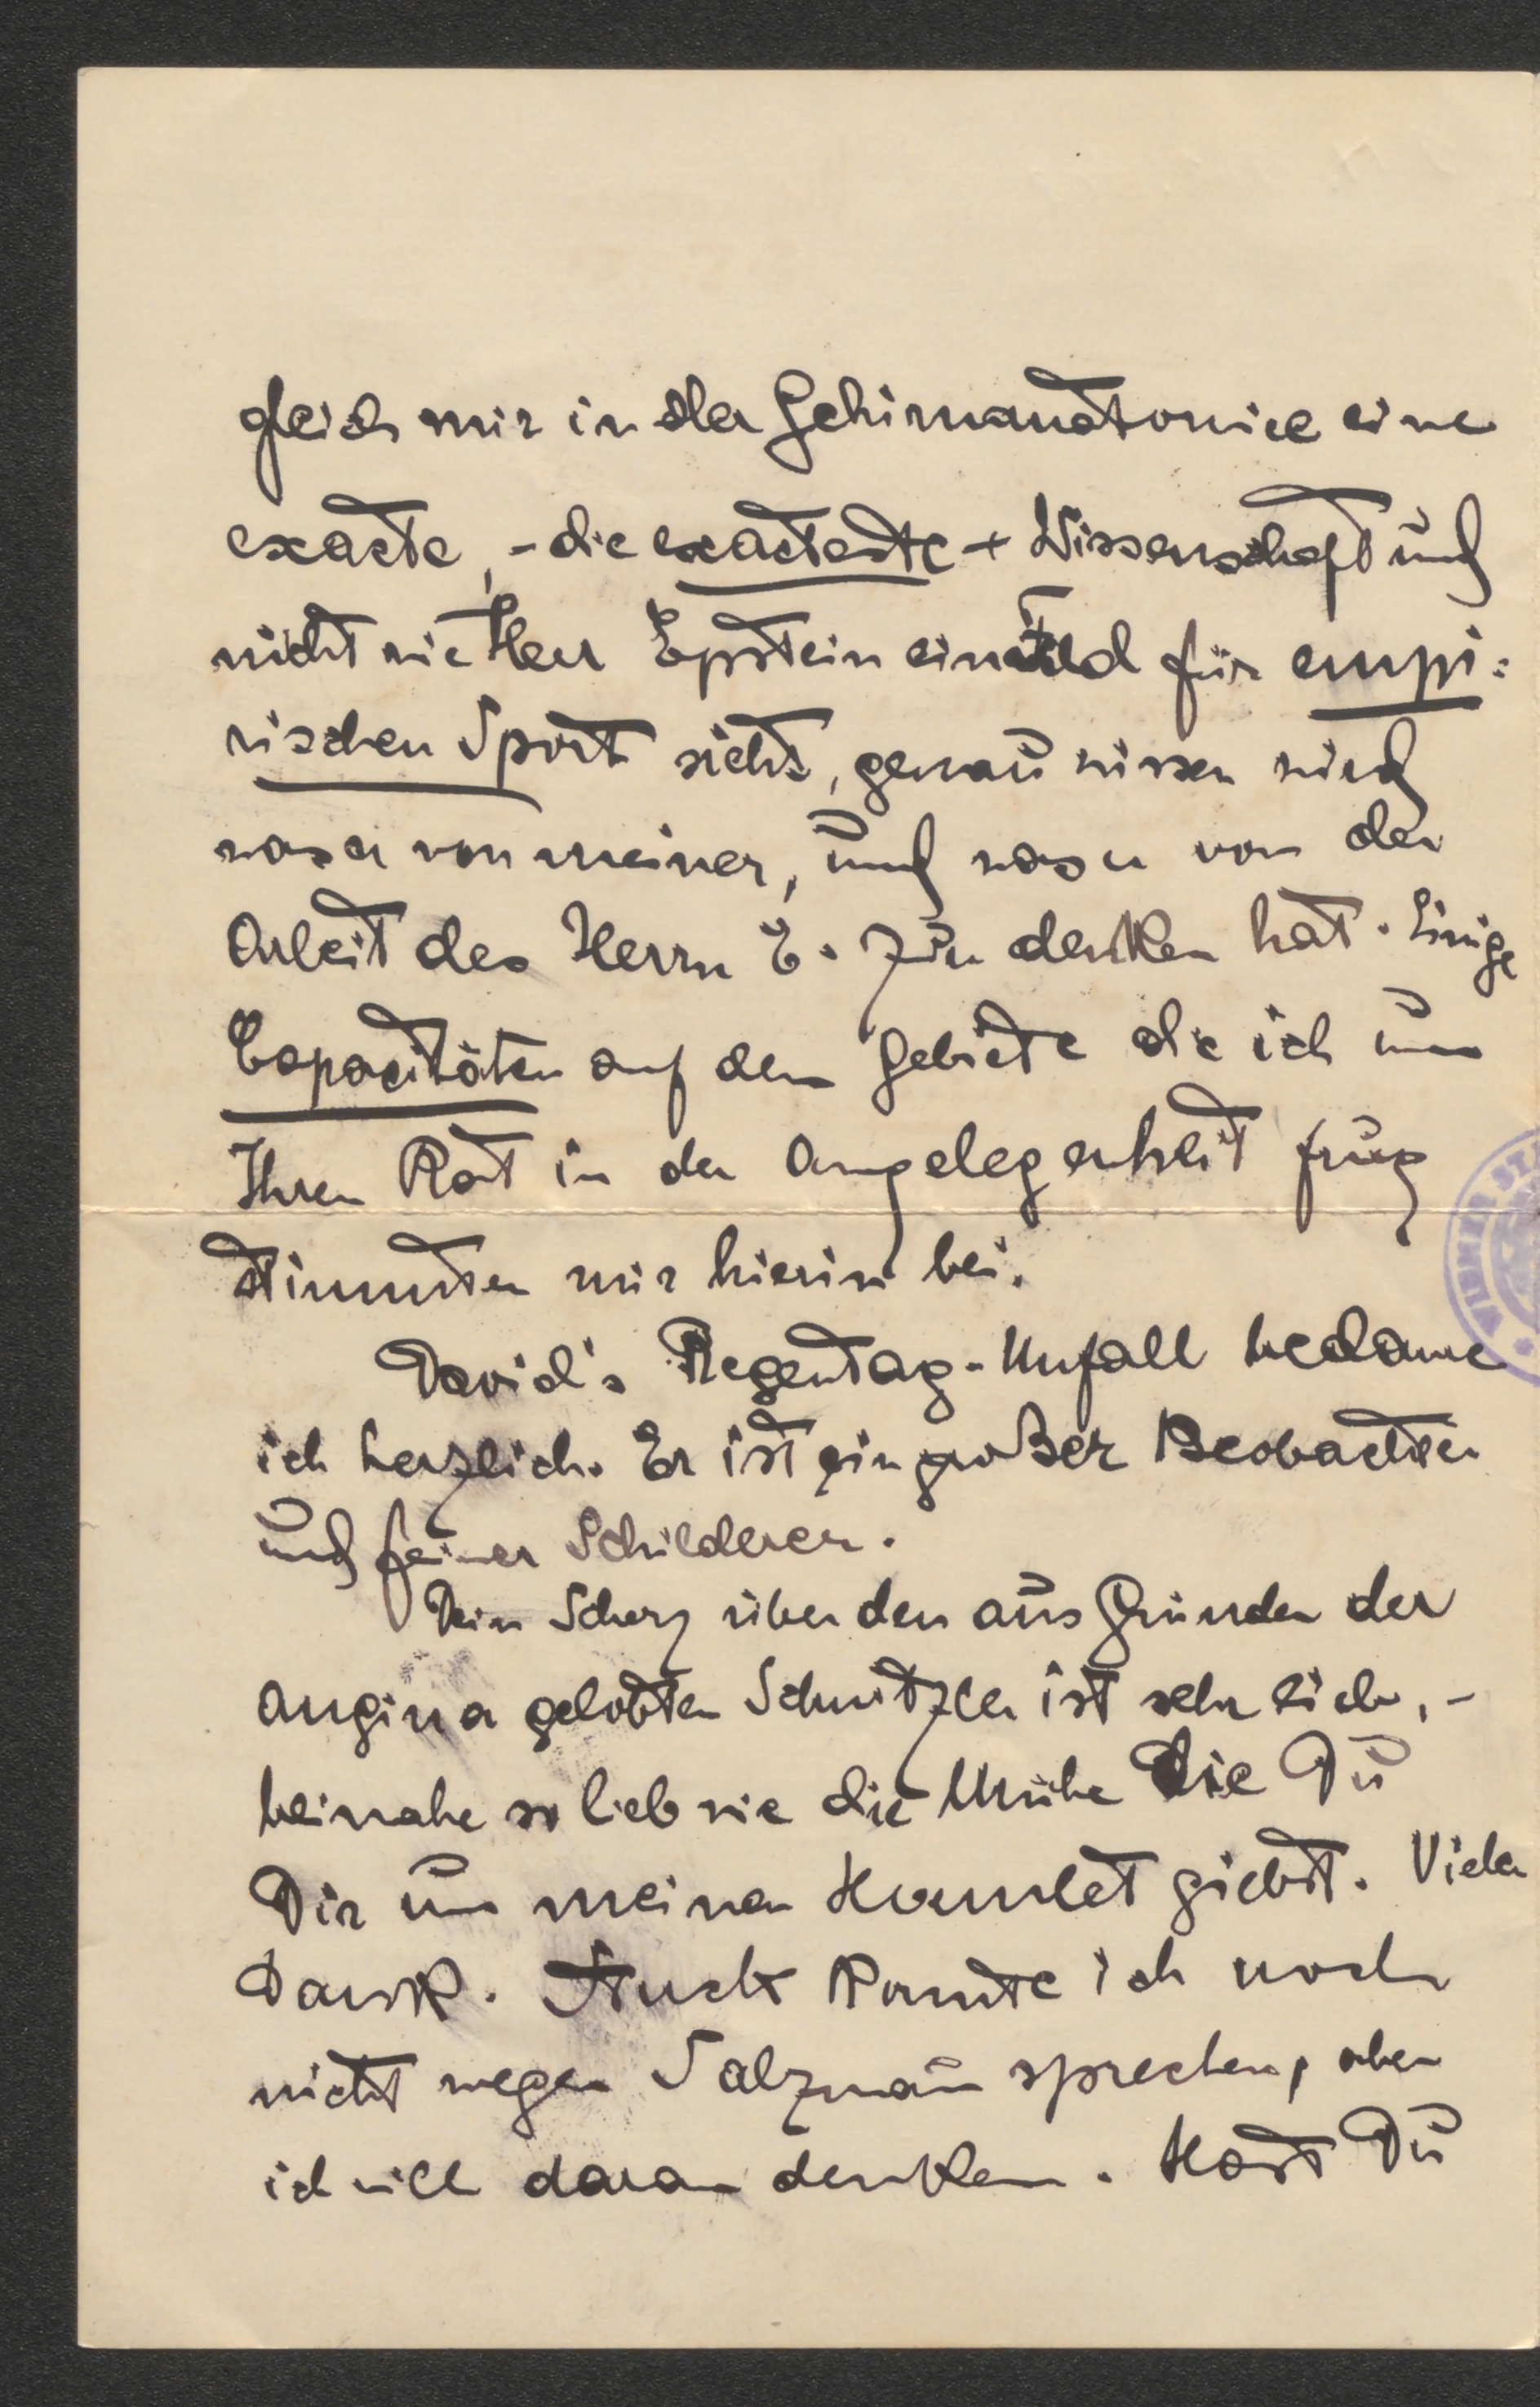 gleich mir in der Gehirnanatomie eine
exacte, – die exacteste – Wissenschaft und
nicht wie Herr Epstein ein Feld für empi:
rischen Sport sieht, genau wissen wird
was er von meiner, und was er von der
Arbeit des Herrn E. zu denken hat. Einige
Capacitäten auf dem Gebiete die ich um
Ihren Rat in der Angelegenheit frug
stimmten mir hierin bei.
David's Regentag-Unfall bedaure
ich herzlich. Er ist ein großer Beobachter
und feiner Schilderer.
Dein Scherz über den aus Gründen der
Angina gelobten Schnitzler ist sehr lieb, –
beinahe so lieb wie die Mühe die Du
Dir um meinen Hamlet giebst. Vielen
Dank. Auch konnte ich noch
nicht wegen Salzmann sprechen, aber
ich will daran denken. Hast Du
WIENER